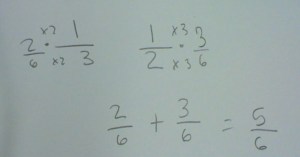 2/6 ·^x2 _x2 1/3   1/2 ·^x3 _x3 3/6
2/6 + 3/6 = 5/6